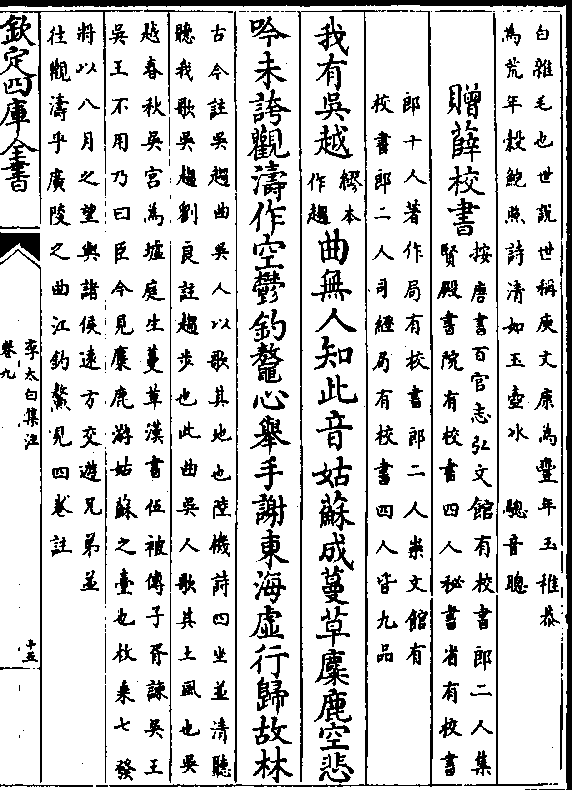 白雜毛也世說世稱庾文康為豐年玉稚恭
為荒年穀鮑照詩清如玉壺冰　驄音聰
贈薛校書
按唐書百官志弘文館有校書郎二人集
賢殿書院有校書四人秘書省有校書
郎十人著作局有校書郎二人崇文館有
校書郎二人司經局有校書四人皆九品
我有吳越
繆本
作趨
曲無人知此音姑蘇成蔓草麋鹿空悲
吟未誇觀濤作空鬱釣鼇心舉手謝東海虛行歸故林
古今註吳趨曲吳人以歌其地也陸機詩四坐並清聽
聽我歌吳趨劉良註趨步也此曲吳人歌其土風也吳
越春秋吳宮為墟庭生蔓草漢書伍被傳子胥諫吳王
吳王不用乃曰臣今見麋鹿游姑蘇之臺也枚乘七發
將以八月之望與諸侯遠方交遊兄弟並
往觀濤乎廣陵之曲江釣鰲見四卷註
欽定四庫全書
李太白集注
卷九
十五